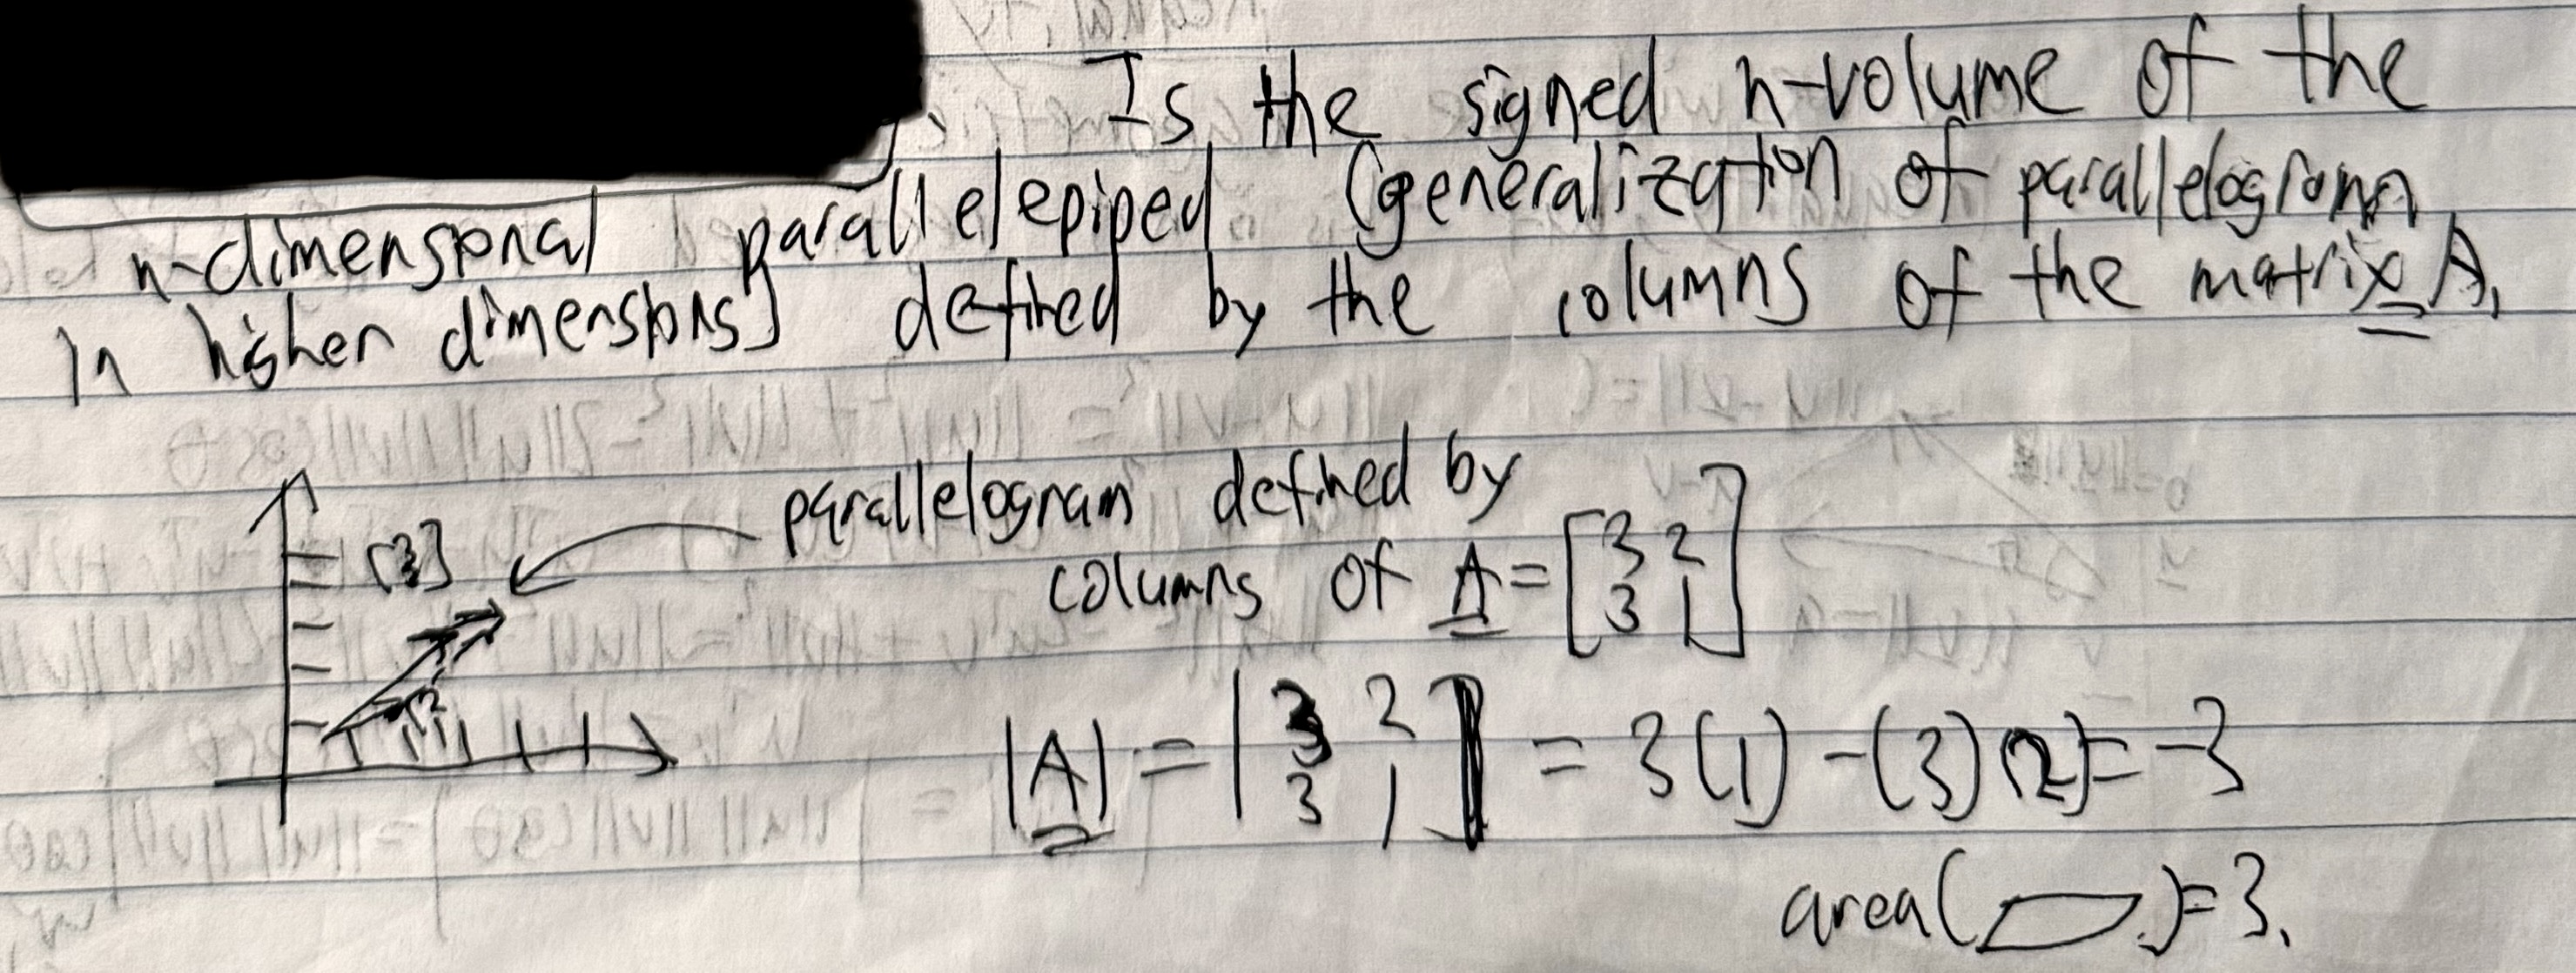 Is the signed n-volume of the
n-dimensional parallelepiped (generalization of parallelogram
in higher dimensions) defined by the columns of the matrix A.
parallelogram defined by
columns of A = [3 2
3 1]
[3
3]
|A| = |3 2
3 1| = 3(1) - (3)(2) = -3
area(▱) = 3.